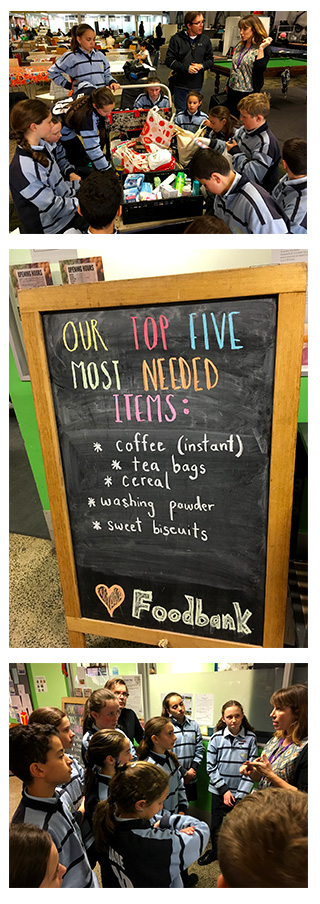 OPENING HOURS
OPENING HOURS
OUR TOP FIVE
MOST NEEDED
ITEMS:
* coffee (instant)
* tea bags
* cereal
* washing powder
* sweet biscuits
Foodbank